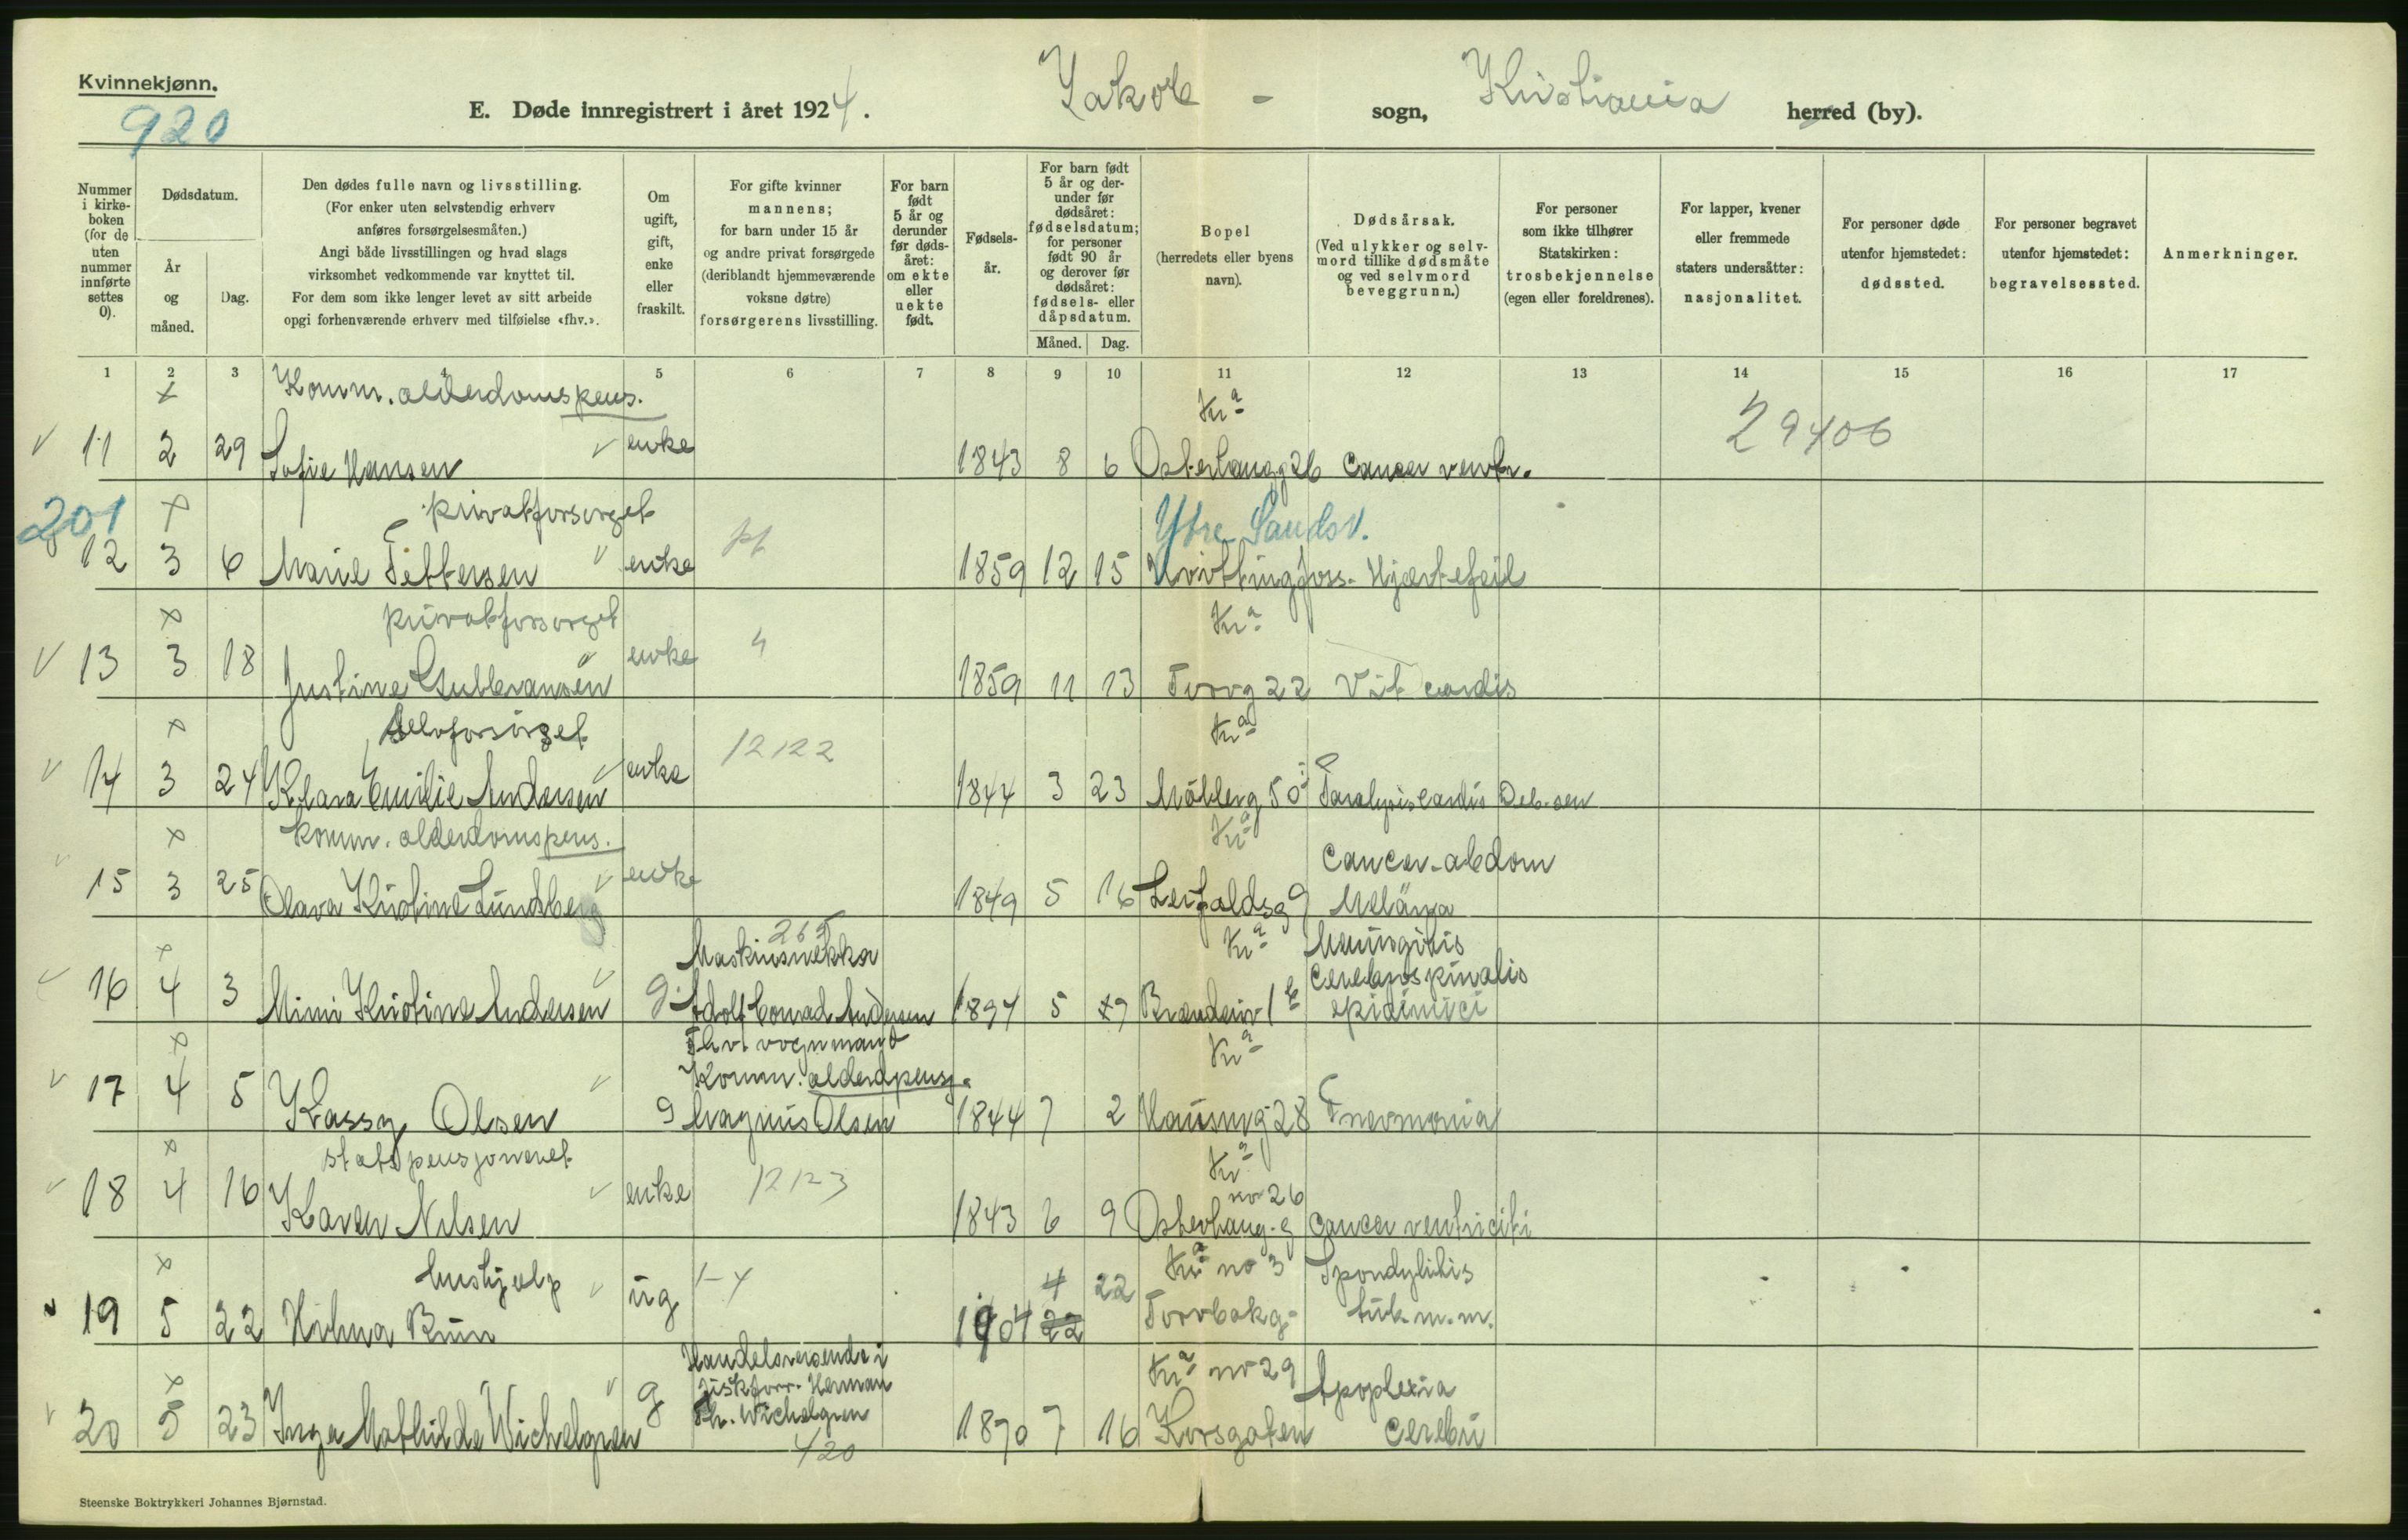 Kvinnekjønn.
920
E. Døde innregistrert i året 1924.
Jakob - sogn, Kristiania herred (by).
Nummer i kirkeboken (for de uten nummer innførte settes 0).
Dødsdatum.
År og måned.
Dag.
Den dødes fulle navn og livsstilling.
(For enker uten selvstendig erhverv anføres forsørgelsesmåten.)
Angi både livsstillingen og hvad slags virksomhet vedkommende var knyttet til.
For dem som ikke lenger levet av sitt arbeide opgi forhenværende erhverv med tilføielse «fhv.».
Om ugift, gift, enke eller fraskilt.
For gifte kvinner mannens; for barn under 15 år og andre privat forsørgede (deriblandt hjemmeværende voksne døtre) forsørgerens livsstilling.
For barn født 5 år og derunder før dødsåret: om ekte eller uekte født.
Fødselsår.
For barn født 5 år og derunder før dødsåret: fødselsdatum; for personer født 90 år og derover før dødsåret: fødsels- eller dåpsdatum.
Måned. Dag.
Bopel (herredets eller byens navn).
Dødsårsak.
(Ved ulykker og selvmord tillike dødsmåte og ved selvmord beveggrunn.)
For personer som ikke tilhører Statskirken: trosbekjennelse (egen eller foreldrenes).
For lapper, kvener eller fremmede staters undersåtter: nasjonalitet.
For personer døde utenfor hjemstedet: dødssted.
For personer begravet utenfor hjemstedet: begravelsessted.
Anmerkninger.
1 2 3 4 5 6 7 8 9 10 11 12 13 14 15 16 17
x Komm. alderdomspens. Kra
29406
v 11 2 29 Sofie Hansen v enke 1843 8 6 Osterhausg 26 Cancer ventr.
201 x privatforsørget Ytre Sandsv.
12 3 6 Marie Pettersen v enke pf 1859 12 15 Hvittingfoss. Hjertefeil
x privatforsørget Kra
v 13 3 18 Justine Gulbransen v enke 4 1859 11 13 Torvg 22 Vit cordis
x Selvforsørget Kra
v 14 3 24 Klara Emilie Andersen v enke 12122 1844 3 23 Møllerg 50 Paralysis cordis Deb. sen
x Komm. alderdomspens. Kra
v 15 3 25 Olava Kristine Lundberg v enke 1849 5 16 Leifaldsg 9 Cancer. abdom
Meläna
x 265
Maskinsnekker Kra Meningitis
v 16 4 3 Mimi Kristine Andersen v g. Adolf Conrad Andersen 1897 5 9 Brenneriv 1 b Cerebrospinalis
epidimici
x Fhv. vognmand Kra
Komm. alderdpensj.
v 17 4 5 Kassy Olsen v g Magnus Olsen 1844 7 2 Hausmg 28 Pneomonia
x statspensjoneret Kra
v 18 4 16 Karen Nilsen v enke 12123 1843 6 9 Osterhaug. g no 26 Cancer ventriculi
x hushjelp v 1-4 4 22 Kra no 3 Spondylitis
v 19 5 22 Hilma Bruu ug 1904 22 Torvbakg. tub. m.m.
x Handelsreisende i Kra no 29 Apoplexia
fiskforr. Herman
v 20 5 23 Inga Mathilde Wichelgren v g Th. Wichelgren 1870 7 16 Korsgaten Cerebri
420
Steenske Boktrykkeri Johannes Bjørnstad.